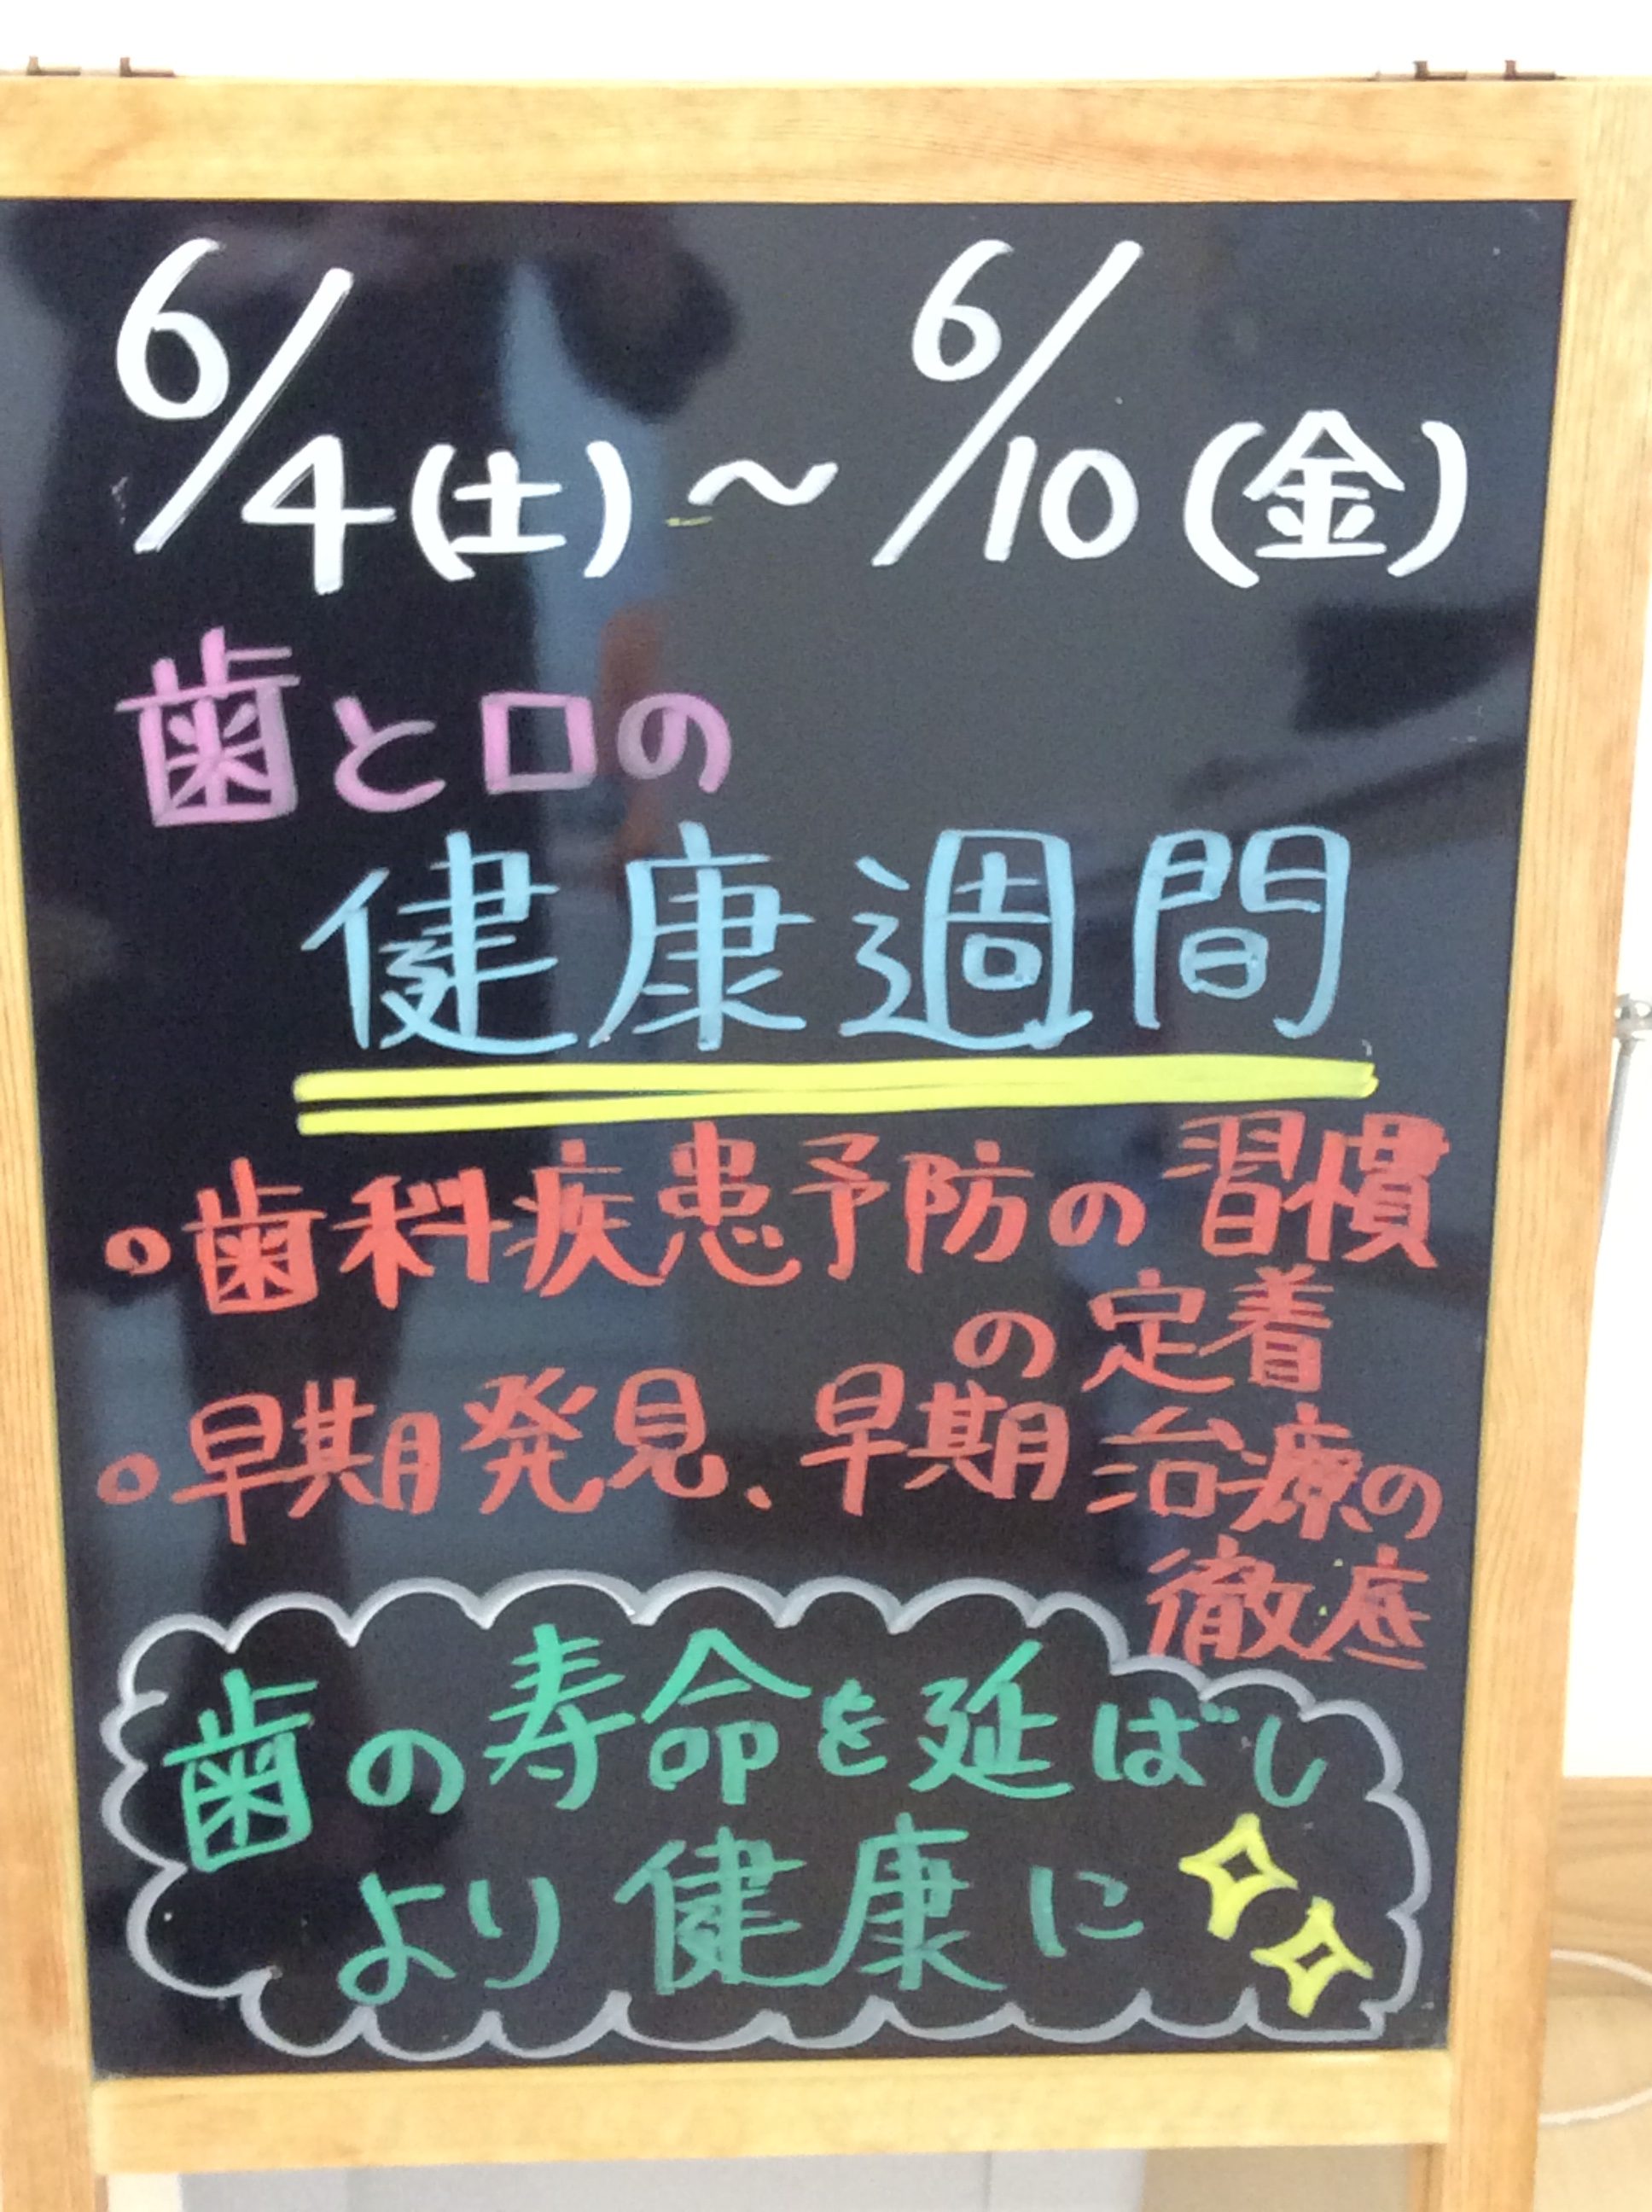 6/4(土)～6/10(金)
歯と口の
健康週間
○歯科疾患予防の習慣
の定着
○早期発見、早期治療の
徹底
歯の寿命を延ばし
より健康に